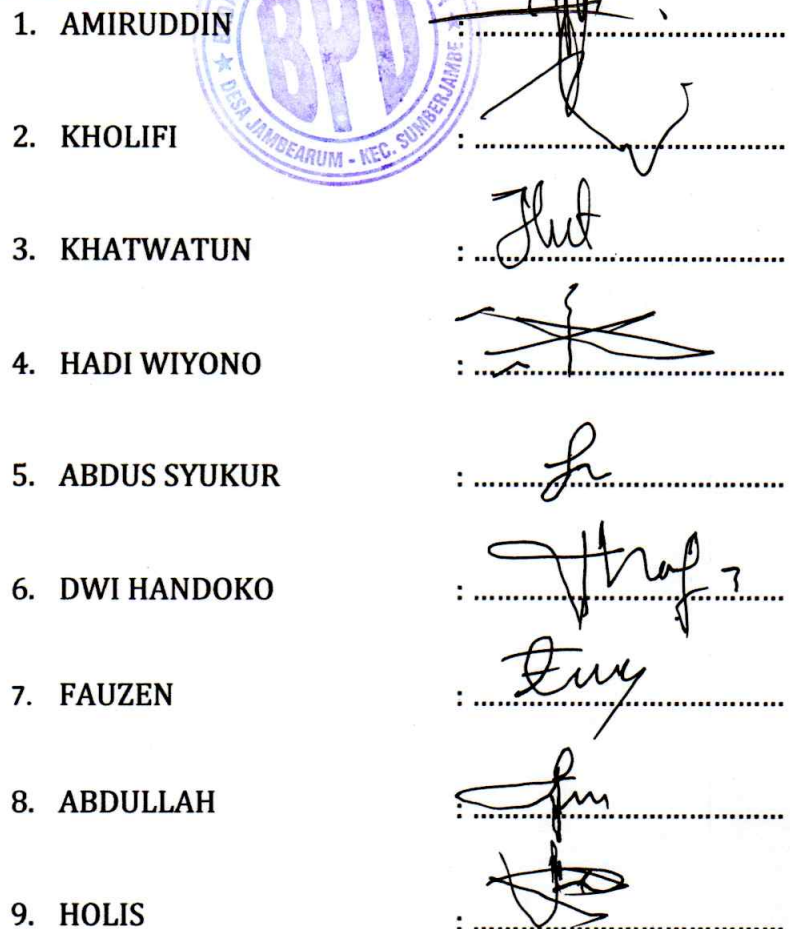 1. AMIRUDDIN :
BPD
★ DESA JAMBEARUM - KEC. SUMBERJAMBE ★
2. KHOLIFI :
3. KHATWATUN :
4. HADI WIYONO :
5. ABDUS SYUKUR :
6. DWI HANDOKO :
7. FAUZEN :
8. ABDULLAH :
9. HOLIS :